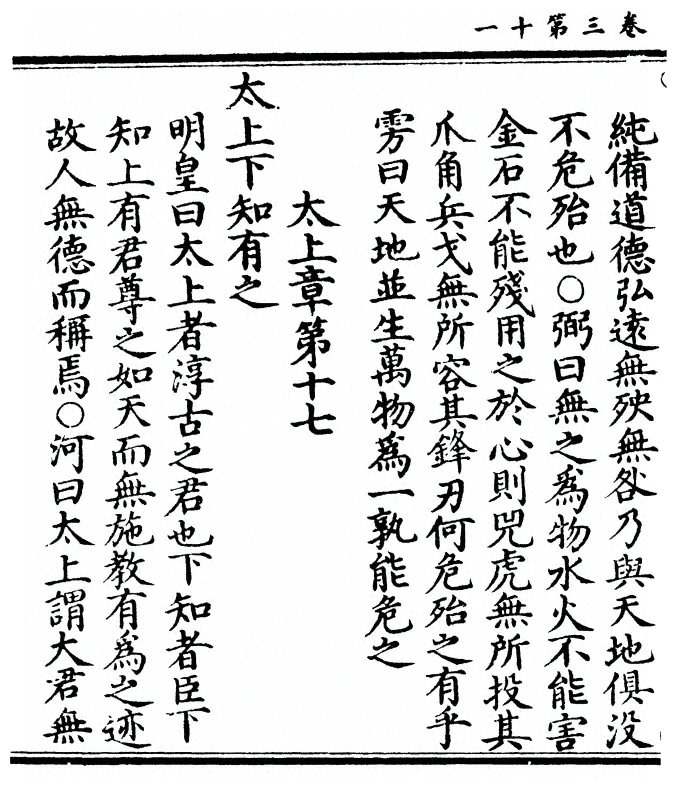 卷三第十一
純備道德弘遠無殃無咎乃與天地俱没
不危殆也〇弼曰無之爲物水火不能害
金石不能殘用之於心則兕虎無所投其
爪角兵戈無所容其鋒刃何危殆之有乎
雱曰天地並生萬物爲一孰能危之
太上章第十七
太上下知有之
明皇曰太上者淳古之君也下知者臣下
知上有君尊之如天而無施教有爲之迹
故人無德而稱焉〇河曰太上謂大君無